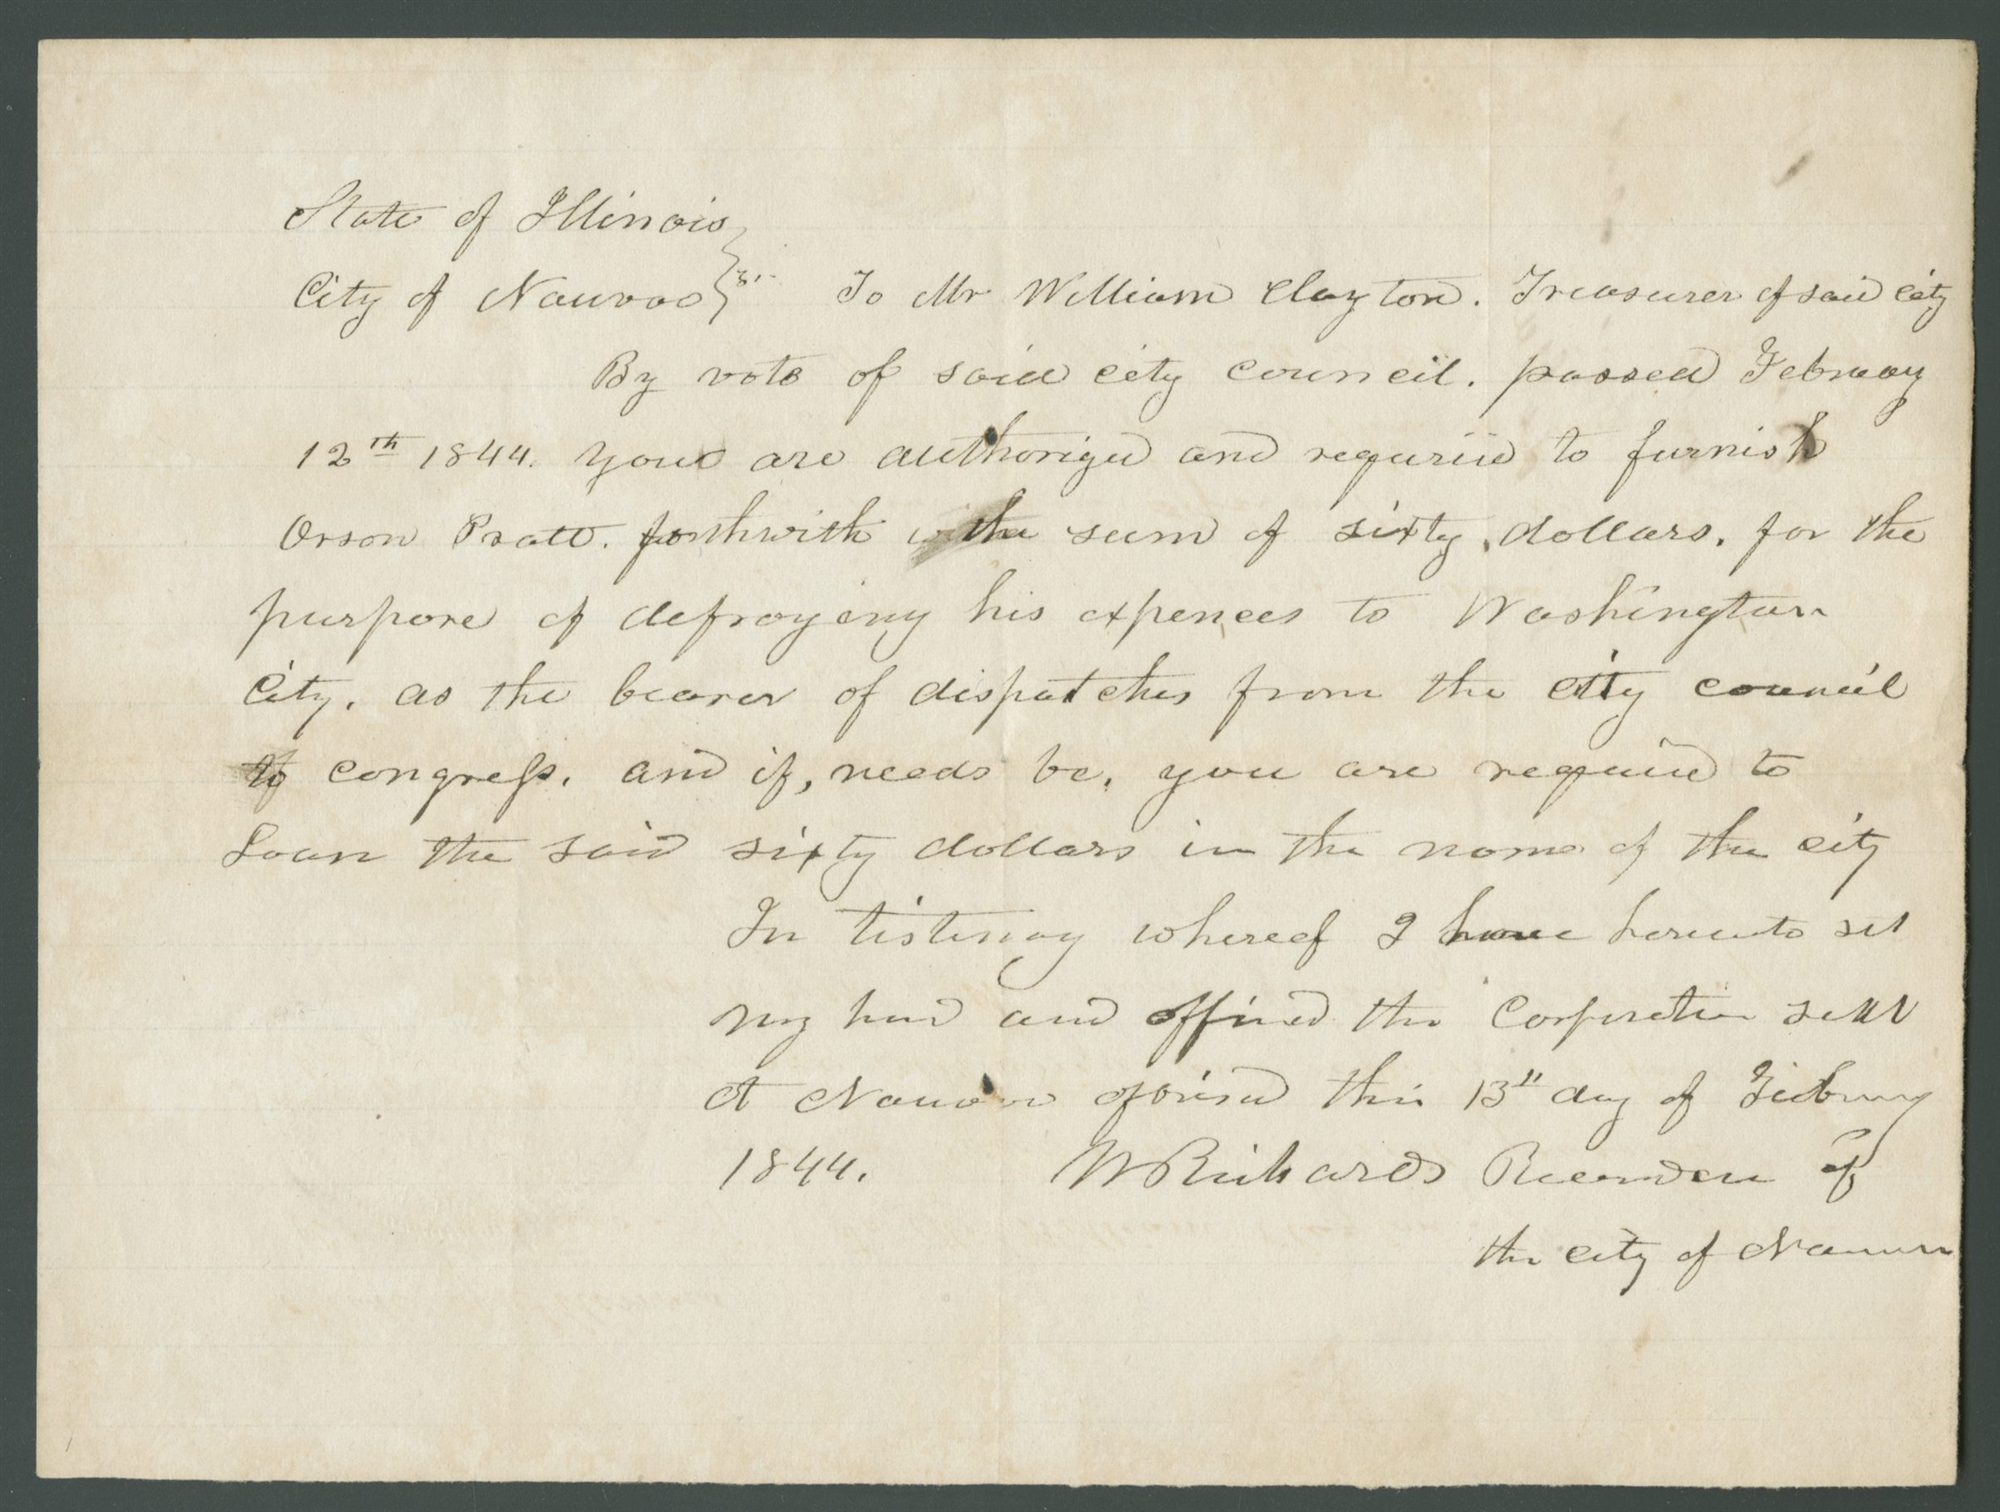 State of Illinois
City of Nauvoo } ss. To Mr William Clayton. Treasurer of said city
By vote of said city council. passed February
12th 1844. you are authorized and required to furnish
Orson Pratt. forthwith with the sum of sixty dollars. for the
purpose of defraying his expences to Washington
City. as the bearer of dispatches from the city council
to congress. and if, needs be. you are required to
Loan the said sixty dollars in the name of the city
In testimony whereof I have hereunto set
my hand and affixed the Corporation seal
At Nauvoo this 13th day of February
1844. W Richards Recorder of
the city of Nauvoo